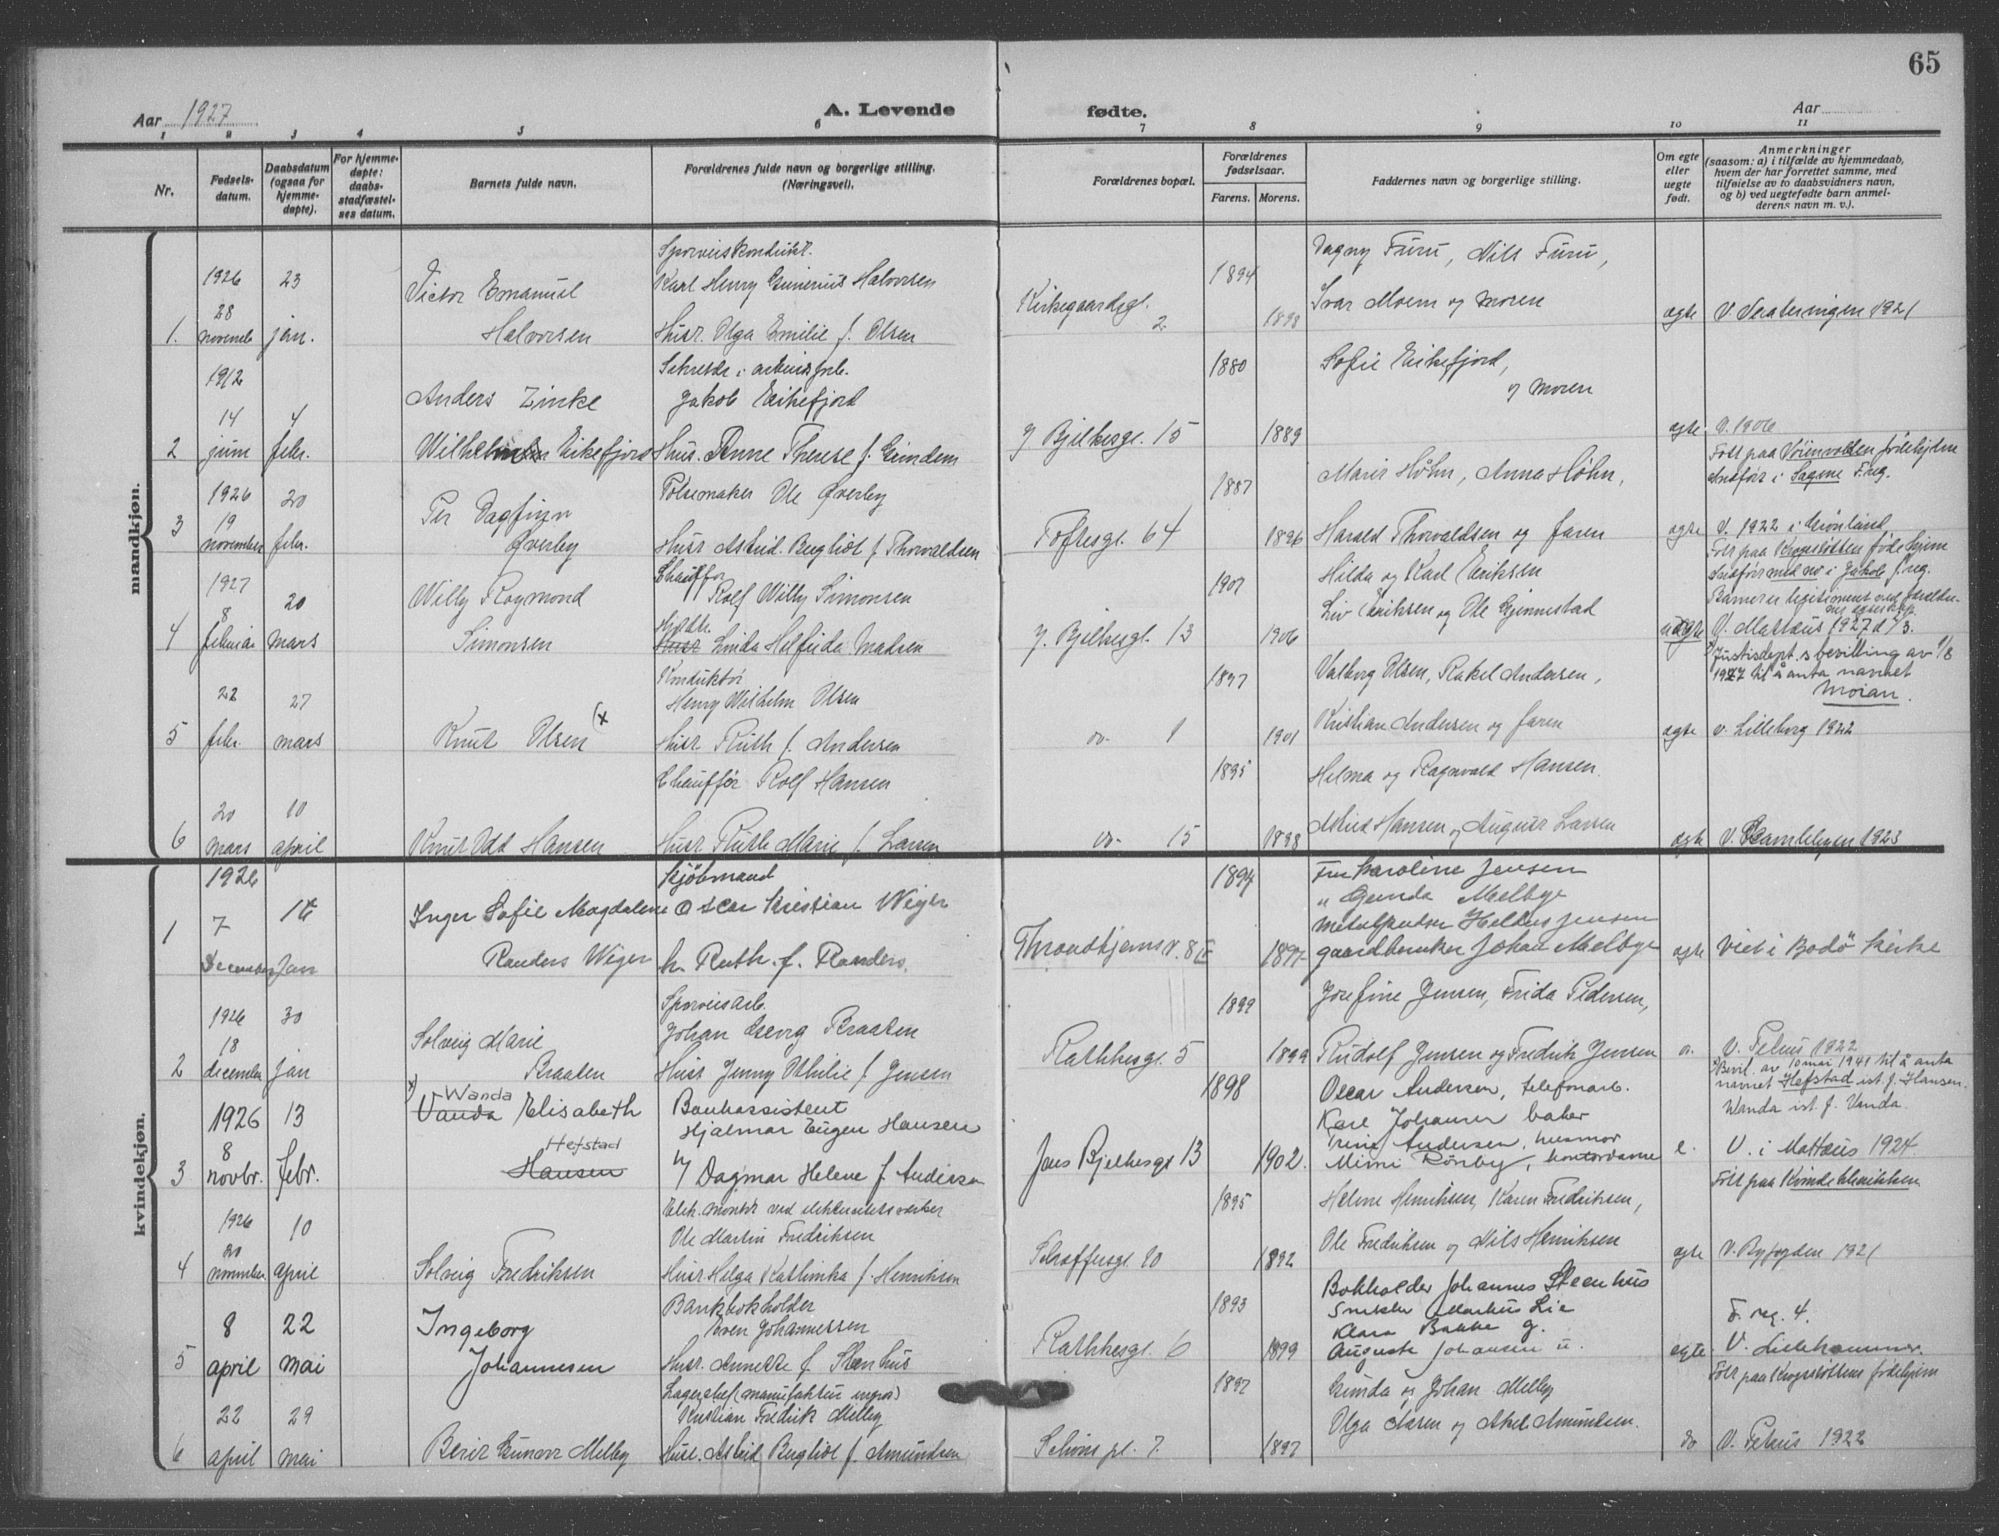 65
Aar 1927
A. Levende
fødte.
Aar
1 2 3 4 5 6 7 8 9 10 11
Nr.
Fødsels-
datum.
Daabsdatum
(ogsaa for
hjemme-
døpte).
For hjemme-
døpte:
daabs-
stadfæstel-
ses datum.
Barnets fulde navn.
Forældrenes fulde navn og borgerlige stilling.
(Næringsvei).
Forældrenes bopæl.
Forældrenes
fødselsaar.
Farens. Morens.
Faddernes navn og borgerlige stilling.
Om egte
eller
uegte
født.
Anmerkninger
(saasom: a) i tilfælde av hjemmedaab,
hvem der har forrettet samme, med
tilføielse av to daabsvidners navn,
og b) ved uegtefødte barn anmel-
derens navn m. v.).
mandkjøn.
1.
1926
28
novemb
23
jan.
Victor Emanuel
Halvorsen
Sporveiskondukt.
Karl Henry Gunerius Halvorsen
Husr. Olga Emilie f. Olsen
Kirkegaardsgt.
2
1894
1898
Dagny Furu, Nils Furu,
Ivar Moem og moren
egte
1921
2
1912
14
juni
7
febr.
Anders Zinke
Wilhelm Eikefjord
Jakob Eikefjord
Hus. Anne Therese f. Grimdem
J Bjelkesgt. 15
1880
1889
Sofie Eikefjord,
og moren
egte
V. 1906
3
1926
19
november
20
febr.
Per Dagfinn
Øverby
Pølsemaker Ole Øverby
Husr Astrid Bergliot f Thorvaldsen
Toftesgt. 64
1887
1896
Marie Høhn, Anna Høhn,
Harald Thorvaldsen og faren
egte
Født paa Voienvolden fødehjem
Indført i Sagene F.reg.
V. 1922 i Grønland
4
1927
8
februar
20
mars
Willy Roymond
Simonsen
Chauffør
Rolf Willy Simonsen
Husr Linda Helfrida Madsen
J. Bjelkesgt. 13
1907
1906
Hilda og Karl Eriksen
Liv Eriksen og Ole Gjennestad
uegte
Født paa Krogstøtten fødehjem
Indført med no i Jakob f.reg.
V. Mattæus 1927 d /3.
5
22
febr.
27
mars
Knut Olsen (x
Konduktør
Henry Wilhelm Olsen
Husr Ruth f. Andersen
do- 1
1897
1901
Valborg Olsen, Rakel Andersen,
Kristian Andersen og faren
egte
Justisdept.s bevilling av 1/8
1947 til å anta navnet
Moian.
v. Lilleborg 1922
6
20
mars
10
april
Knut Odd Hansen
Chauffør Rolf Hansen
Husr Ruth Marie f. Larsen
do- 15
1895
1898
Helma og Ragnvald Hansen.
Astrid Hansen og August Larsen
egte
V. Gamlebyen 1923
kvindekjøn.
1
1926
7
December
16
Jan
Inger Sofie Magdalene
Randers Wiger
Kjøbmand
Oscar Kristian Wiger
h. Ruth. f. Randers.
Throndhjemsv. 8 IV
1894
1897
Fru Karoline Jensen
" Gunda Melbye
Jensen
gaardbruker Johan Melbye
egte
Viet i Bodö kirke
2
1926
18
december
30
jan
Solveig Marie
Braaten
Sporveisarb.
Johan Georg Braaten
Husr Jenny Othilie f. Jensen
Rathkesgt. 5
1899
1899
Josefine Jensen, Frida Pedersen,
Rudolf Jensen og Fredrik Jensen
V. Petrus 1922
3
1926
8
novbr.
13
febr.
x) Wanda
Vanda Elisabeth
Hefstad
Hansen
Bankassistent
Hjalmar Eugen Hansen
Dagmar Helene f. Andersen
Jens Bjelkesgt 13
1898
1902.
Oscar Andersen, telefonarb.
Karl Johansen baker
Trine Andersen, husmor
Mimi Rönby, kontordame
e.
x) Bevil. av 10 mai 1941 til å anta
navnet Hefstad ist. f. Hansen.
Wanda ist. f. Vanda.
V. i Mattæus 1924.
4
1926
20
november
10
april
Solveig Fredriksen
Elek. montør ved elektricitetsverket
Ole Martin Fredriksen
Husr Helga Kathinka f. Henriksen
Schæffersgt. 10
1895
1892
Helene Henriksen, Karen Fredriksen,
Ole Fredriksen og Nils Henriksen
egte
Født paa Kvindeklinikken
V. Byfogden 1921
5
8
april
22
mai
Ingeborg
Johannessen
Bankbokholder
Even Johannessen
Husr. Annette f. Stenhus
Rathkesgt. 6
1893
1899
Bokholder Johannes Steenhus
Snekker Markus Lie
Klara Bakke g.
Auguste Johansen u.
egte
F. reg. 4.
V. Lillehammer.
6
22
april
29
mai
Berit Gunvor Melby
Lagerchef (manufaktur engros)
Kristian Fredrik Melby
Husr. Astrid Bergliot f. Amundsen
Schous pl. 7
1897
1897
Gunda og Johan Melby
Olga Aasen og Aksel Amundsen.
do
Født paa Krogstøttens fødehjem
V. Petrus 1922